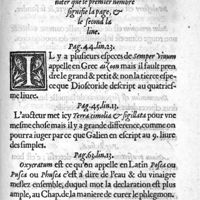 noter que le premier nombre
signifie la page, &
le second la
line.
Pag.44.lin.23.
IL y a plusieurs especes de Semper Vivum
appellé en Grec mais il faut prendre
le grand & petit & non la tierce espece
que Dioscoride descript au quatriesme
livre.
Pag.45.lin.13.
L'aucteur met icy Terra cimolia & sigillata pour une
mesme chose mais il y a grande difference, comme on
pourra iuger par ce que Galien en escript au 9. livre
des simples.
Pag.63.lin.13.
Oxycratum est ce qu'on appelle en Latin Posca ou
Pusca ou Phusca c'est à dire de l'eau & du vinaigre
meslez ensemble, duquel mot la declaration est plus
ample, au Chap. de la maniere de curer le phlegmon.